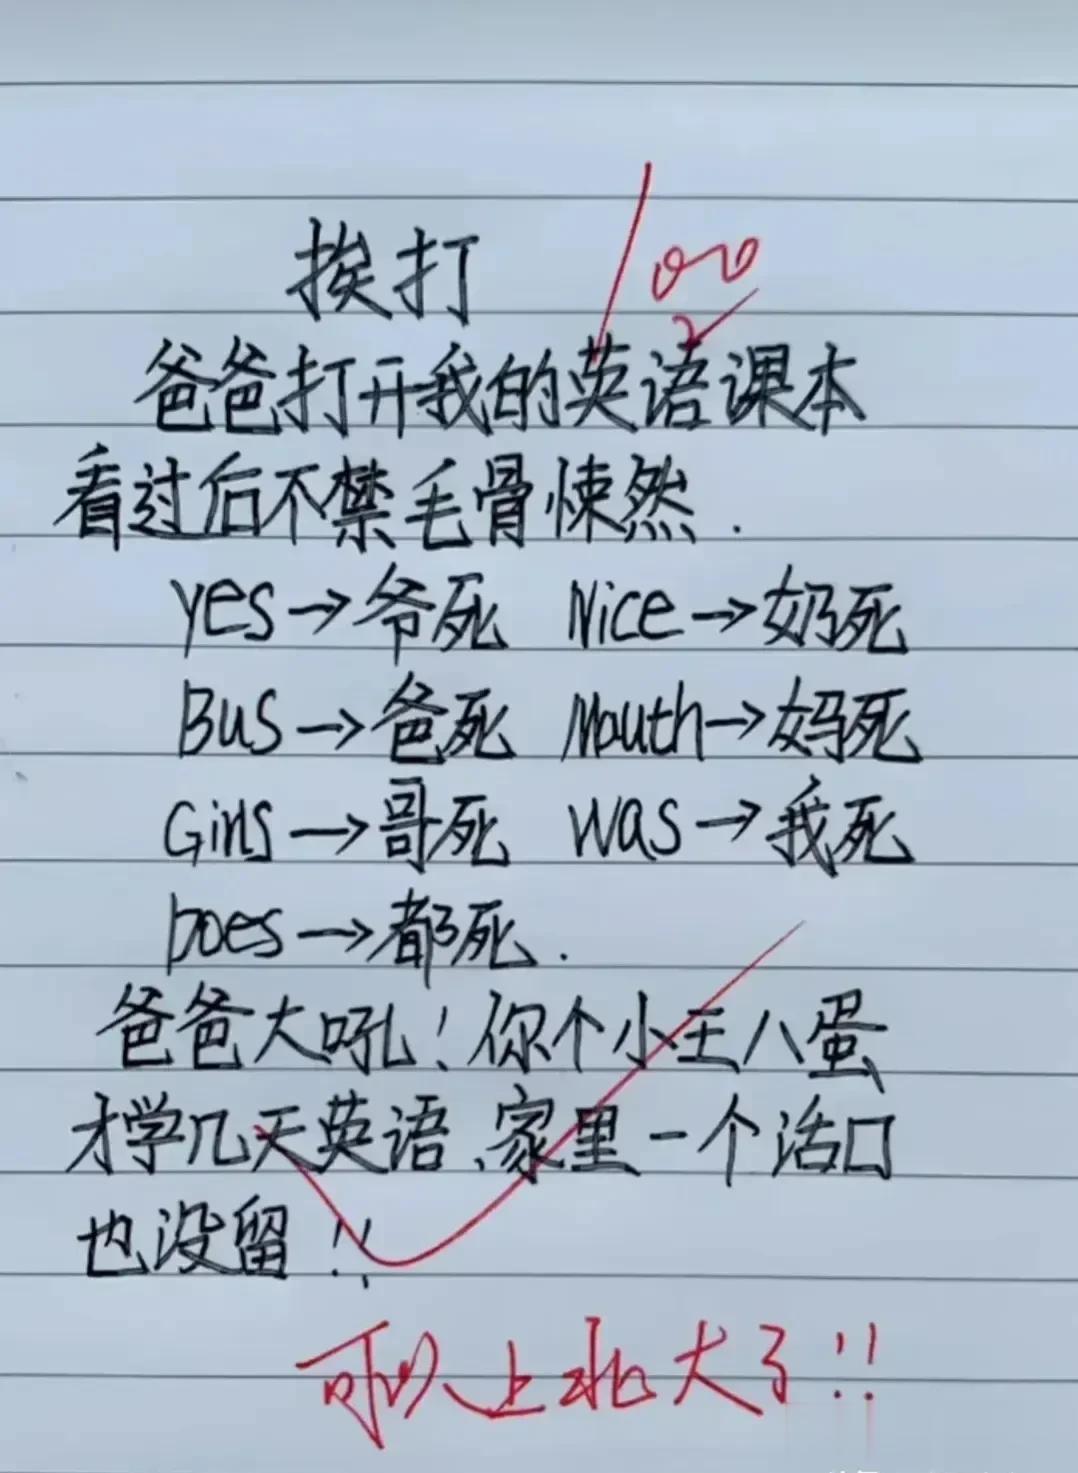 挨打
100
爸爸打开我的英语课本
看过后不禁毛骨悚然.
yes→爷死 Nice→奶死
Bus→爸死 Mouth→妈死
Girls→哥死 was→我死
Does→都死.
爸爸大吼!你个小王八蛋
才学几天英语、家里一个活口
也没留!!
可以上北大了!!